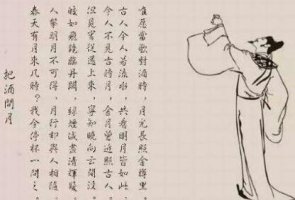 把酒問月
青天有月來幾時？我今停杯一問之。
人攀明月不可得，月行却與人相隨。
皎如飛鏡臨丹闕，綠煙滅盡清輝發。
但見宵從海上來，寧知曉向云間沒。
今人不見古時月，今月曾經照古人。
古人今人若流水，共看明月皆如此。
唯愿當歌對酒時，月光長照金樽里。